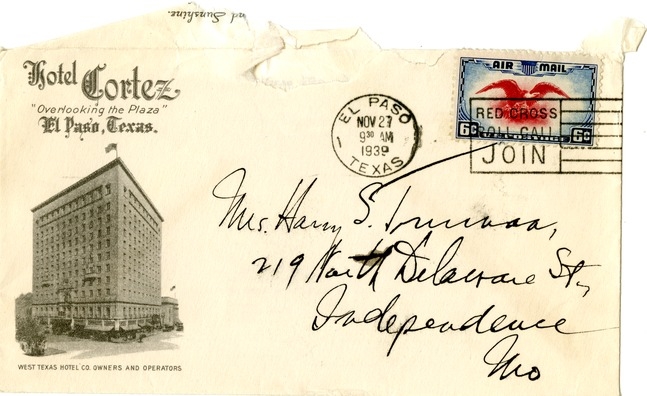 nd Sunshine.
Hotel Cortez
"Overlooking the Plaza"
El Paso, Texas.
AIR MAIL
6¢ 6¢
EL PASO
NOV 27
9 30 AM
1939
TEXAS
1
RED CROSS
ROLL CALL
JOIN
Mrs. Harry S. Truman,
219 North Delaware St.,
Independence
Mo
WEST TEXAS HOTEL CO. OWNERS AND OPERATORS